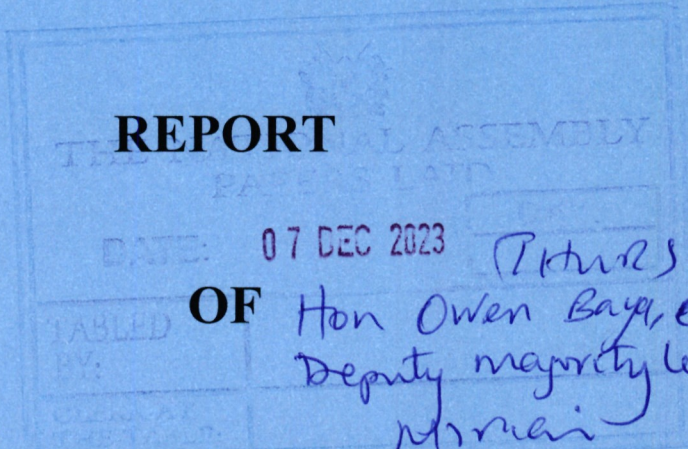 REPORT
THE NATIONAL ASSEMBLY
PAPERS LAID
DATE: 07 DEC 2023 THURS
DAY:
OF
TABLED
BY:
Hon Owen Baya,
Deputy majority
CLERK AT
THE TABLE: